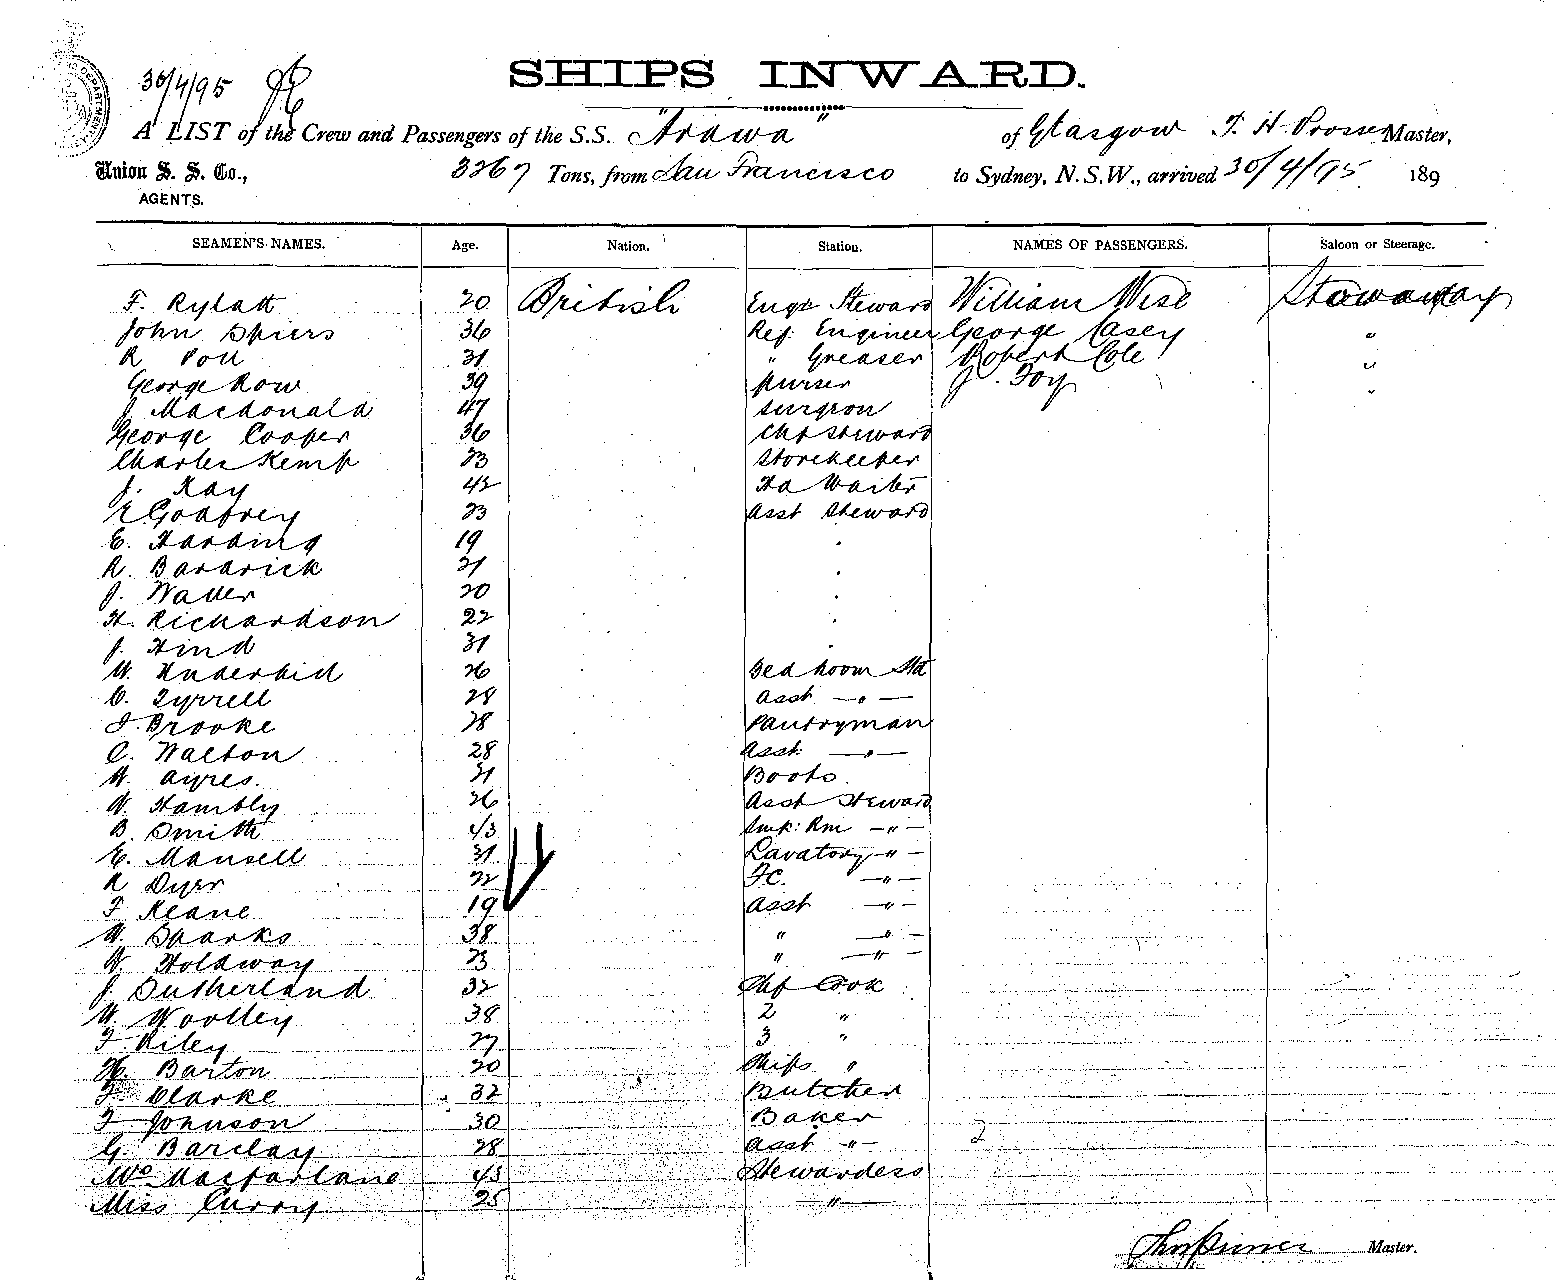 30/4/95
SHIPS INWARD.
A LIST of the Crew and Passengers of the S.S. "Arawa" of Glasgow T. H. Prosser Master,
Union S. S. Co., 3267 Tons, from San Francisco to Sydney, N.S.W., arrived 30/4/95 189
AGENTS.
SEAMEN'S NAMES. Age. Nation. Station. NAMES OF PASSENGERS. Saloon or Steerage.
F. Rylatt 20 British Engr Steward William Wise Stowaway
John Spiers 36 Ref. Engineer George Casey "
R 31 " Greaser Robert Cole "
George Row 39 Purser J. Foy "
J. Macdonald 47 Surgeon
George Cooper 36 Chf Steward
Charles Kemp 23 Storekeeper
J. Kay 42 Hd Waiter
E Godfrey 23 Asst Steward
E. Harding 19 "
R. Bararick 21 "
J. Waller 20 "
H. Richardson 22 "
J. Hind 31 "
W. Underhid 26 Bed Room Std
C. Tyrrell 28 Asst — " —
J. Brooke 28 Pantryman
C. Walton 28 Asst — " —
W. Ayres 21 Boots
W. Hambly 26 Asst Steward
B. Smith 43 Smk: Rm — " —
E. Mansell 31 Lavatory — " —
R Dyer 22 — " —
F Keane 19 Asst — " —
W. Sparks 38 " — " —
W. Holdway 23 " — " —
J. Sutherland 32 Chf Cook
W Woolley 38 2 "
F Riley 27 3 "
H. Barton 20 Ships "
F. Clarke 32 Butcher
F Johnson 30 Baker
G. Barclay 28 Asst — " — 2
Mrs Macfarlane 43 Stewardess
Miss Curry 25 — " —
Master.